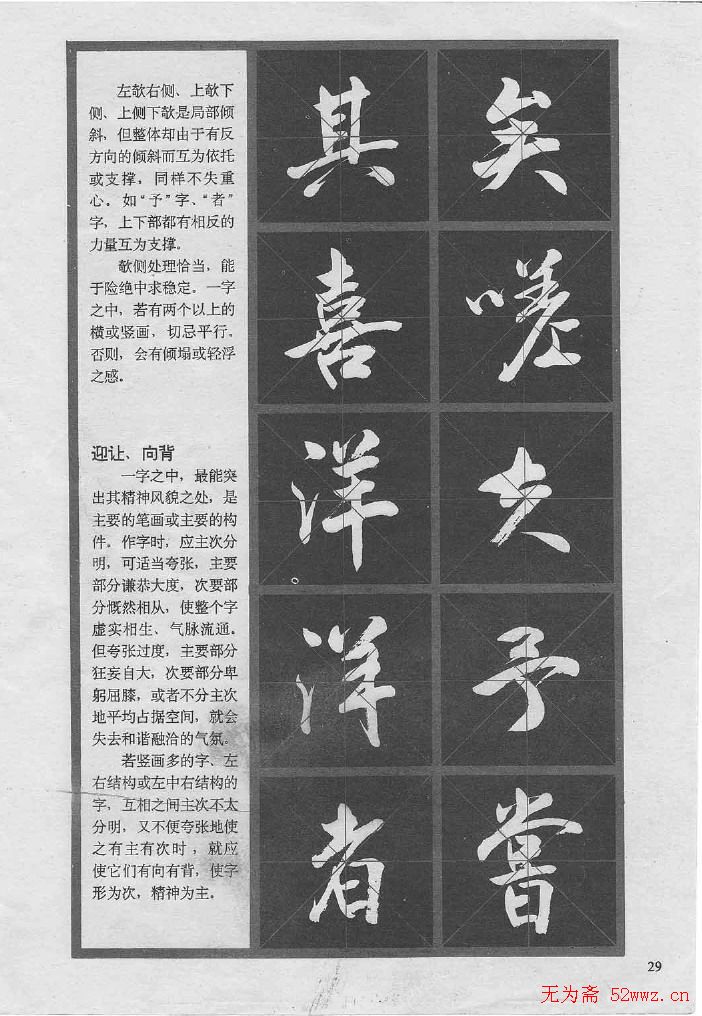 左欹右侧、上欹下
侧、上侧下欹是局部倾
斜，但整体却由于有反
方向的倾斜而互为依托
或支撑，同样不失重
心。如“予”字、“者”
字，上下部都有相反的
力量互为支撑。
欹侧处理恰当，能
于险绝中求稳定。一字
之中，若有两个以上的
横或竖画，切忌平行。
否则，会有倾塌或轻浮
之感。
迎让、向背
一字之中，最能突
出其精神风貌之处，是
主要的笔画或主要的构
件。作字时，应主次分
明，可适当夸张，主要
部分谦恭大度，次要部
分慨然相从，使整个字
虚实相生、气脉流通。
但夸张过度，主要部分
狂妄自大，次要部分卑
躬屈膝，或者不分主次
地平均占据空间，就会
失去和谐融洽的气氛。
若竖画多的字、左
右结构或左中右结构的
字，互相之间主次不太
分明，又不便夸张地使
之有主有次时，就应
使它们有向有背，使字
形为次，精神为主。
其
喜
洋
洋
者
矣
嗟
夫
予
嘗
29
无为斋 52wwz.cn